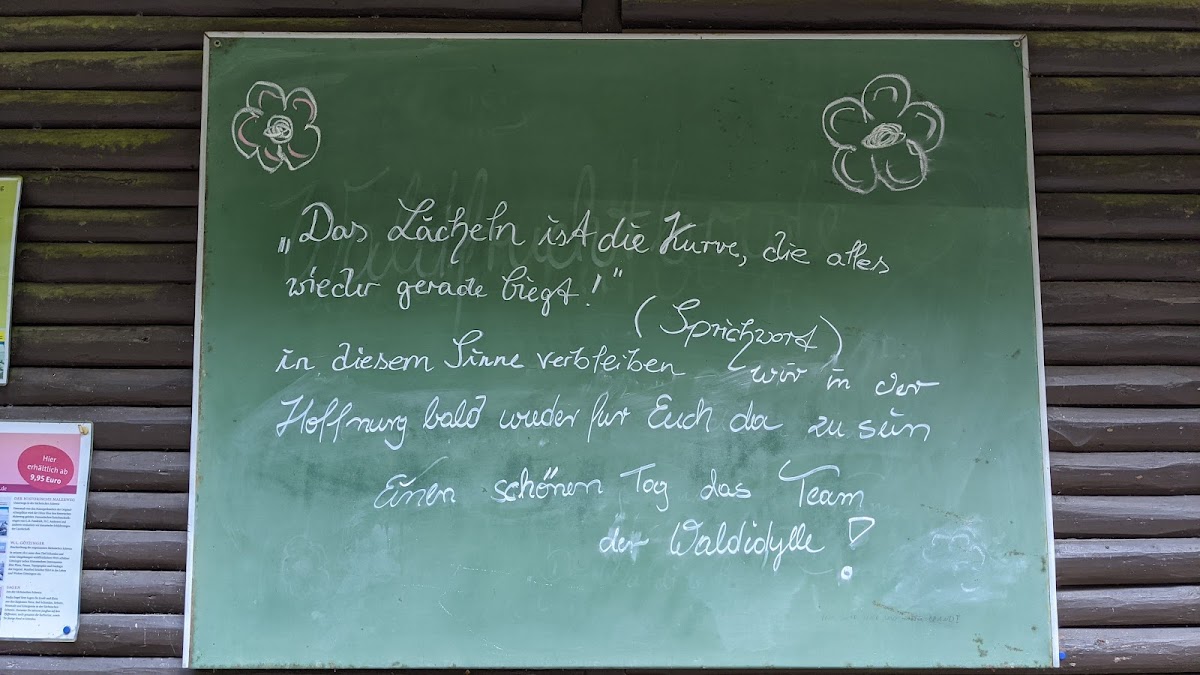 „Das Lächeln ist die Kurve, die alles
wieder gerade biegt!"
(Sprichwort)
in diesem Sinne verbleiben wir in der
Hoffnung bald wieder für Euch da zu sein
Einen schönen Tag das Team
der Waldidylle!
Hier
erhältlich ab
9,95 Euro